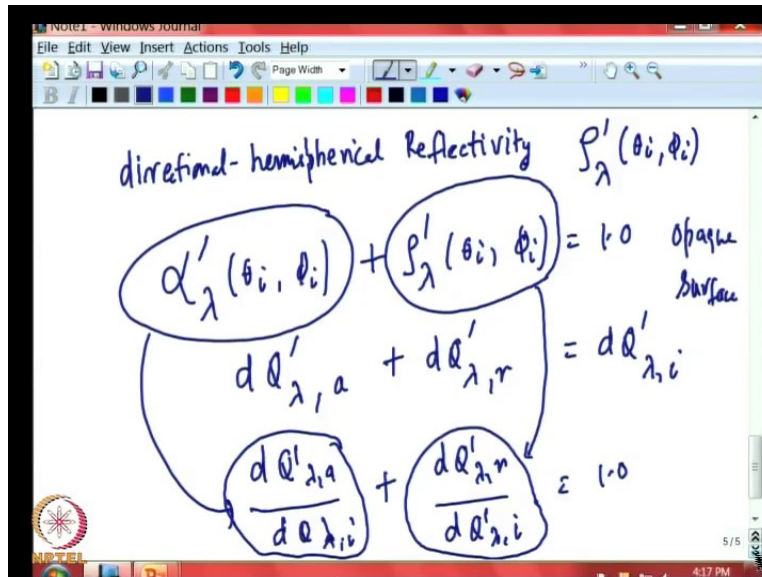 Note1 - Windows Journal
File Edit View Insert Actions Tools Help
Page Width
B I
dirretional-hemispherical Reflectivity ρ'λ (θi, ϕi)
α'λ (θi, ϕi) + ρ'λ (θi, ϕi) = 1.0 opaque
surface
dQ'λ,a + dQ'λ,r = dQ'λ,i
dQ'λ,a / dQλ,i + dQ'λ,r / dQ'λ,i = 1.0
NPTEL
5/5
4:17 PM